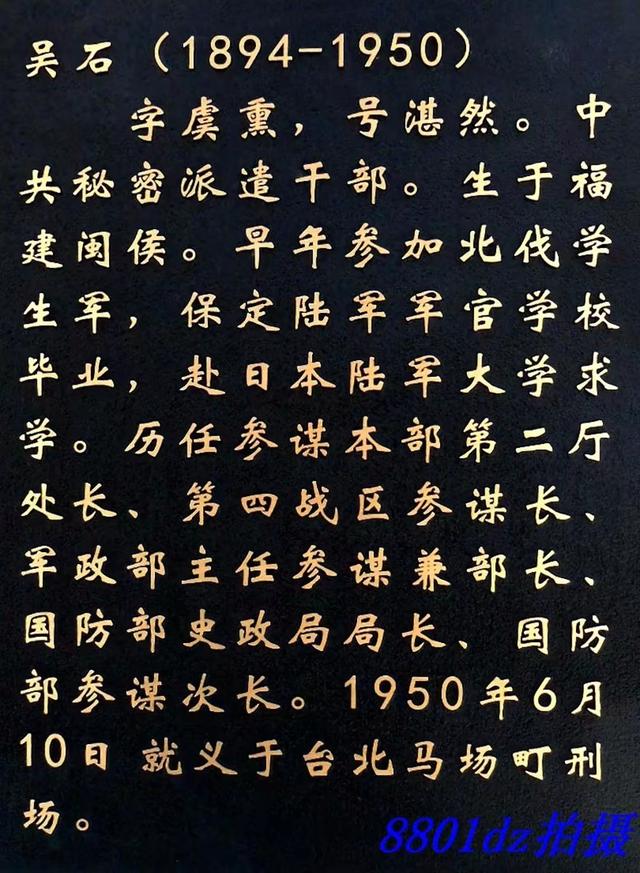 吴石（1894-1950）
字虞熏，号湛然。中
共秘密派遣干部。生于福
建闽侯。早年参加北伐学
生军，保定陆军军官学校
毕业，赴日本陆军大学求
学。历任参谋本部第二厅
处长、第四战区参谋长、
军政部主任参谋兼部长、
国防部史政局局长、国防
部参谋次长。1950年6月
10日就义于台北马场町刑
场。
8801dz拍摄